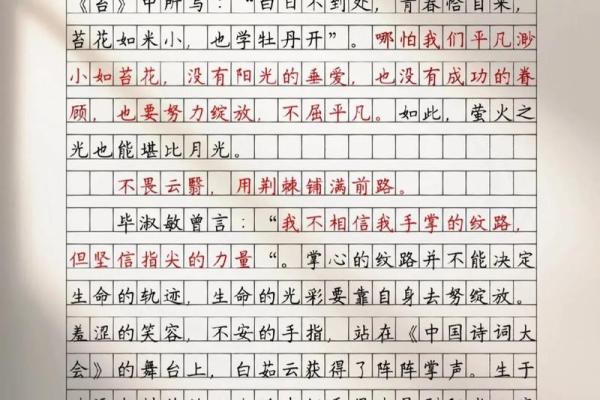 《苔》中所写：“白日不到处，青春恰自来，
苔花如米小，也学牡丹开”。哪怕我们平凡渺
小如苔花，没有阳光的垂爱，也没有成功的眷
顾，也要努力绽放，不屈平凡。如此，萤火之
光也能堪比月光。
不畏云翳，用荆棘铺满前路。
毕淑敏曾言：“我不相信我手掌的纹路，
但坚信指尖的力量“。掌心的纹路并不能决定
生命的轨迹，生命的光彩要靠自身去努绽放。
羞涩的笑容，不安的手指，站在《中国诗词大
会》的舞台上，白茹云获得了阵阵掌声。生于